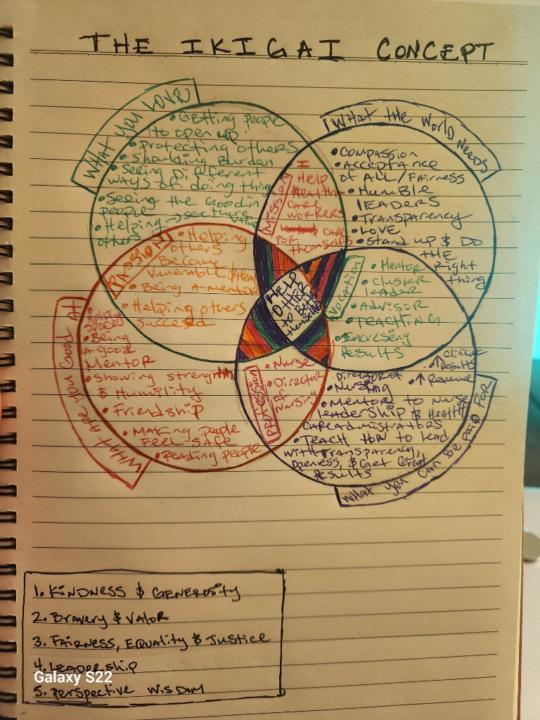 THE IKIGAI CONCEPT
WHAT YOU LOVE
• Getting people
to open up
• Protecting others
• Shoulding Burden
• Seeing Different
ways of doing thing
• Seeing the Good in
people
• Helping
others
What the World Needs
• Compassion
• Acceptance
of All / Fairness
• Humble
leaders
• Transparency
• Love
• Stand up & Do
the
Right
thing
Mission
I
Help
Health
care
workers
care
for
themselves
Passion
• Helping
others
Become
Vulnerable &
• Being a mentor
• Helping others
Succeed
Vocation
• Mentor
• Cluster
leader
• Advisor
• Teaching
• Incresing
Results
HELP
OTHER
to Be
themselves
What are You Good At
• Being
a good
Mentor
• Showing strength
& Humility
• Friendship
• Making people
Feel Safe
• Reading people
Profession
• Nurse
• Director
of
Nursing
What you can be paid for
• ↑ Clinical
Results
• ↑ Revenue
Director of
Nursing
• Mentor to Nurse
leadership & Health
care administrators
• Teach how to lead
with transparency,
openess, & Get Great
Results
1. Kindness & Generosity
2. Bravery & Valor
3. Fairness, Equality & Justice
4. Leadership
5. Perspective Wisdom
Galaxy S22